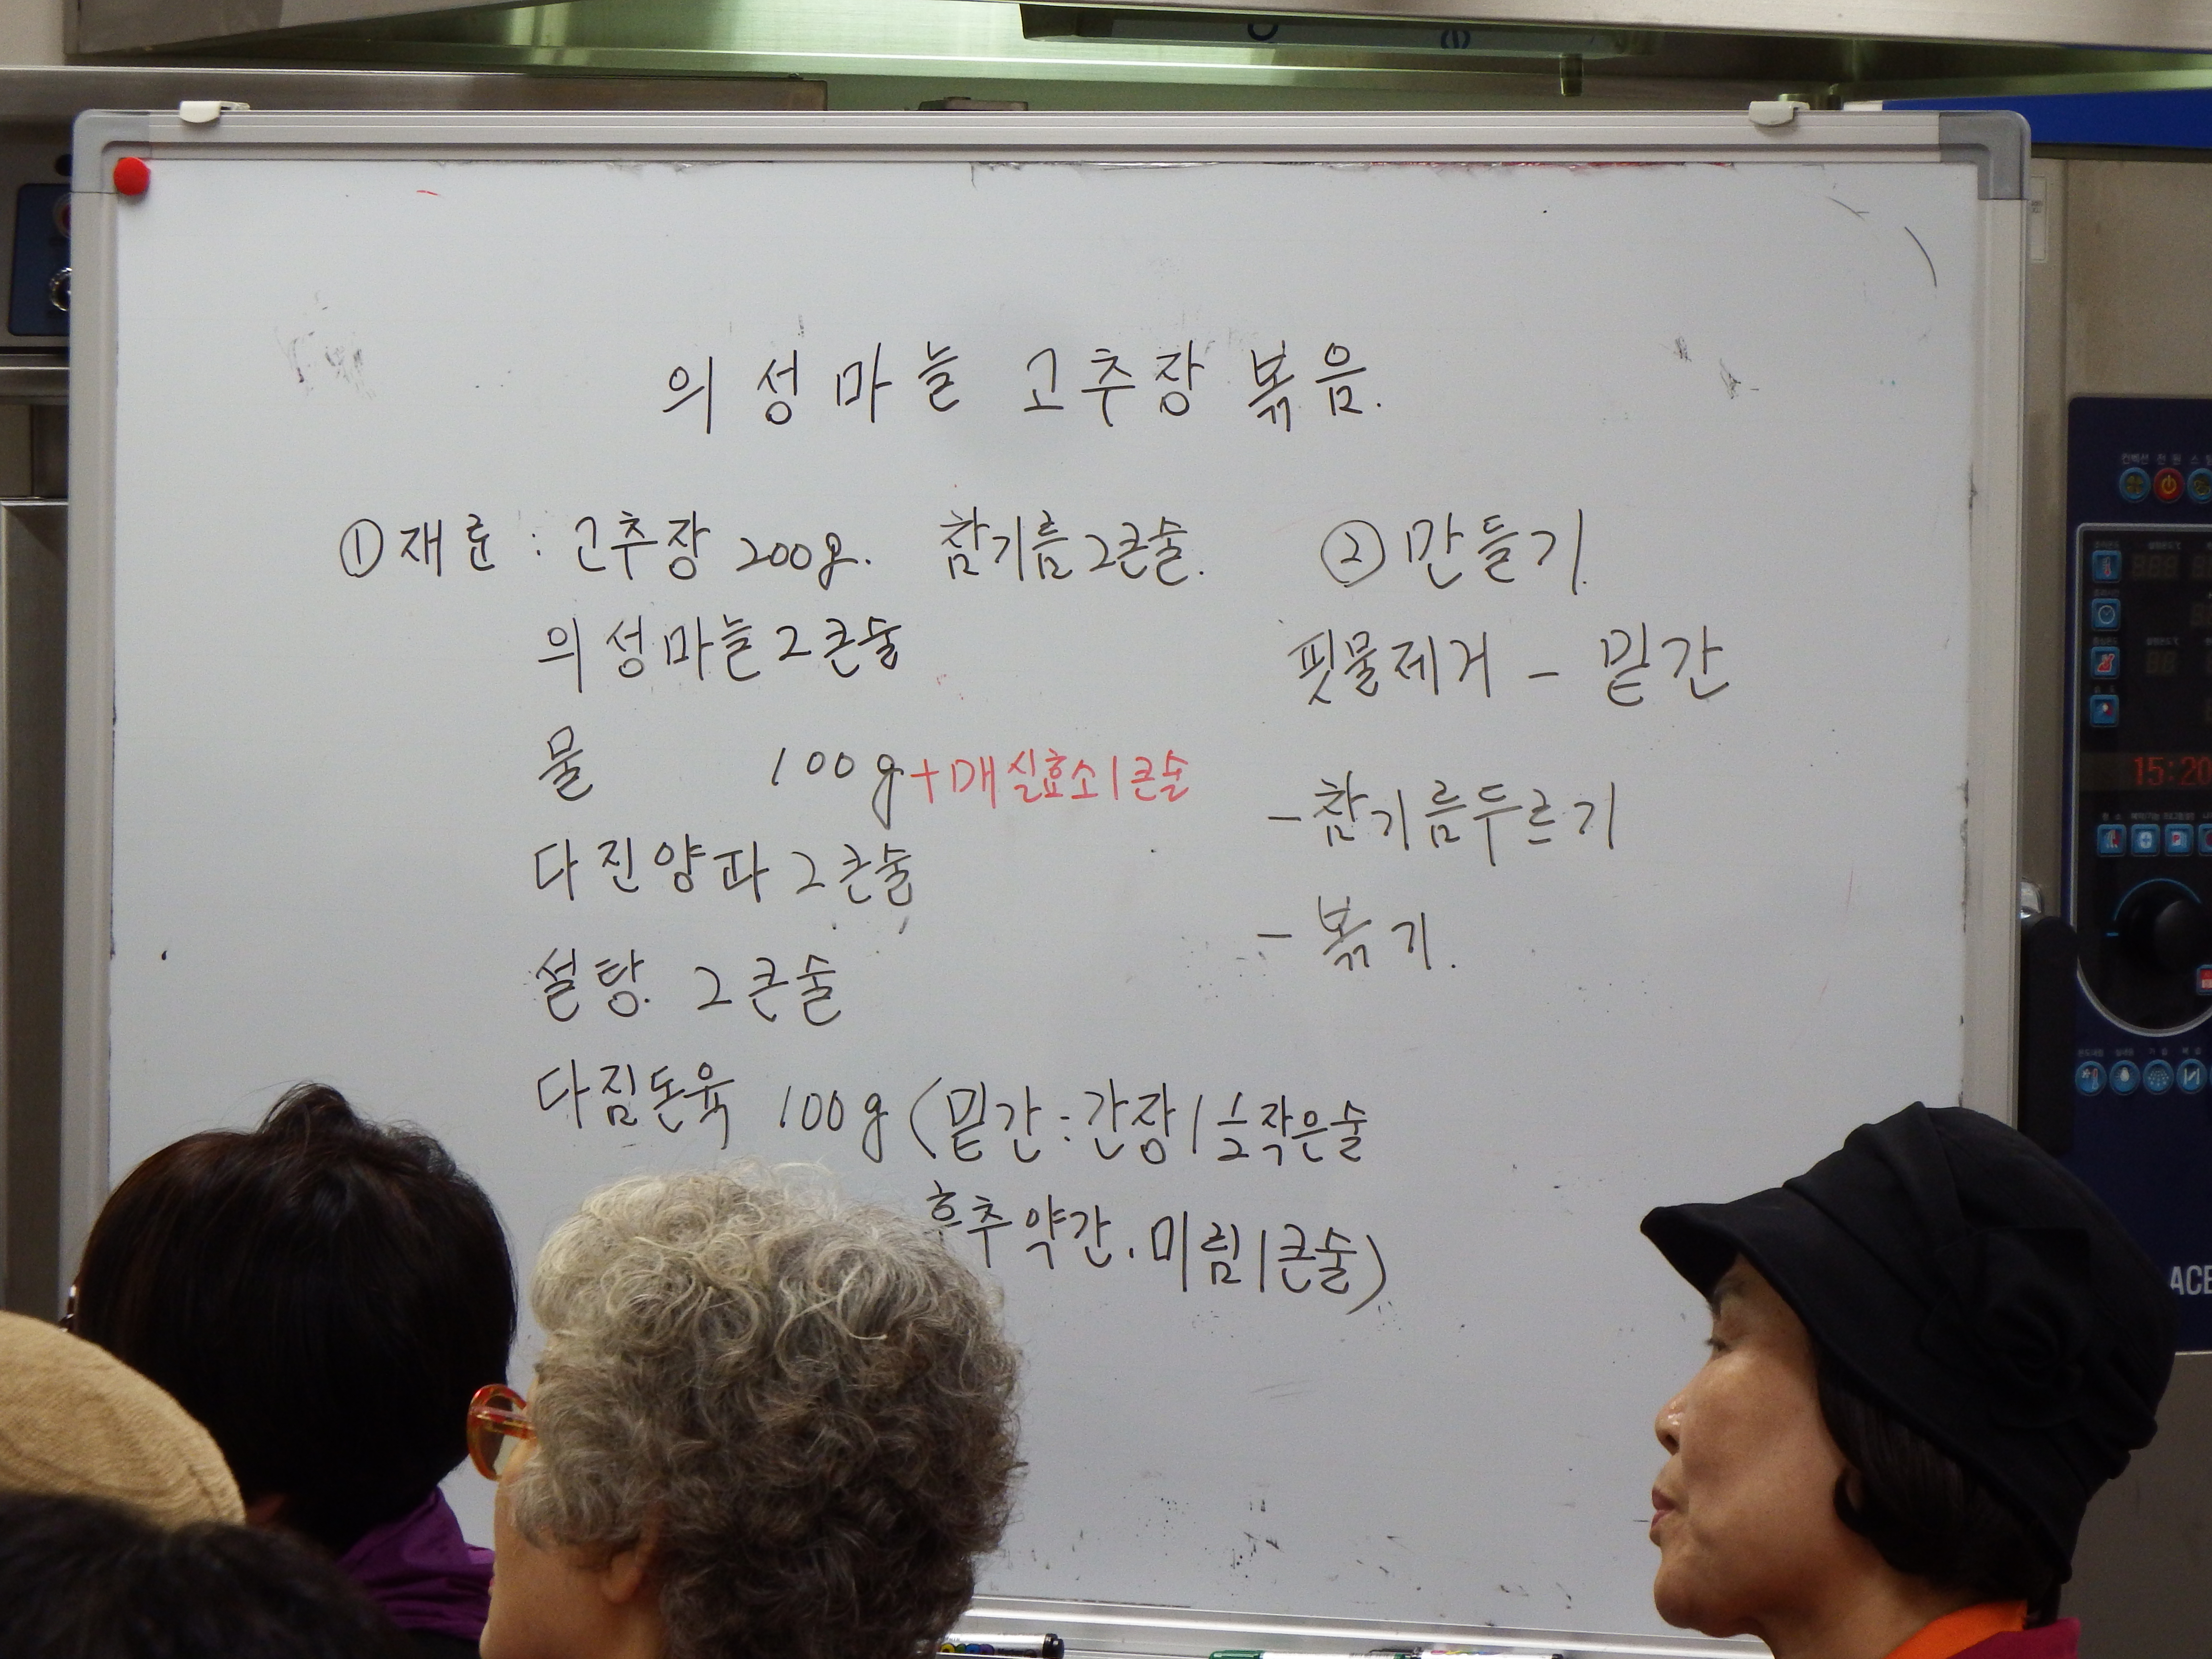 의성마늘 고추장 볶음.
① 재료 : 고추장 200g. 참기름 2큰술.
의성마늘 2큰술
물 100g +매실효소 1큰술
다진양파 2큰술
설탕. 2큰술
다짐돈육 100g (밑간:간장 1 1/2 작은술
후추약간. 미림 1큰술)
② 만들기.
핏물제거 - 밑간
- 참기름두르기
- 볶기.
컨벡션 전원
15:20
ACE